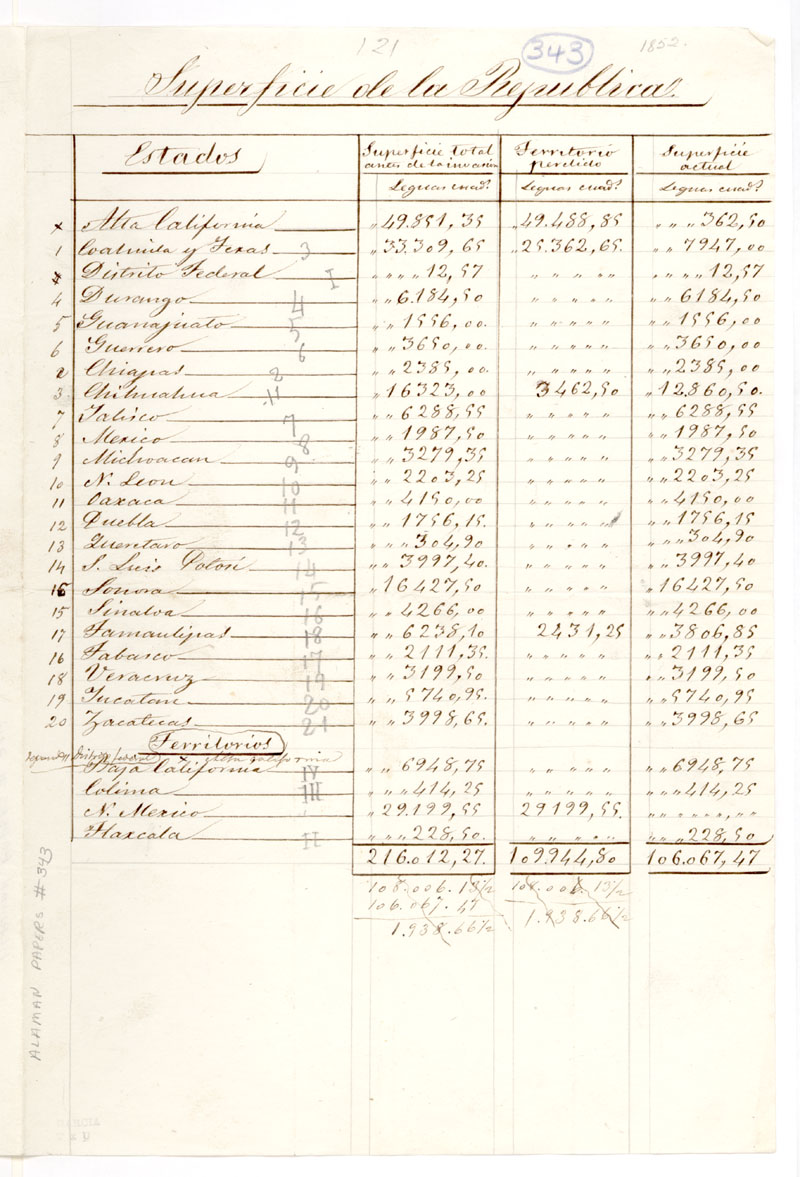 121
343
1852.
Superficie de la Republica.
Estados
Superficie total antes de la invasion
Territorio perdido
Superficie actual
Leguas cuad.s Leguas cuad.s Leguas cuad.s
x Alta California " 49.851,35 " 49.488,85 " " " 362,50
1 Coahuila y Texas 3 " 33.309,65 " 25.362,65. " " 7947,00
Distrito Federal I " " " " 12,57 " " " " " " " " " 12,57
4 Durango 4 " " 6.184,50 " " " " " " " 6184,50
5 Guanajuato 5 " " 1556,00. " " " " " " " 1556,00
6 Guerrero 6 " " 3650,00. " " " " " " " 3650,00
2 Chiapas 2 " " 2385,00. " " " " " " " 2385,00
3 Chihuahua " 16323,00 3462,50 " 12.860,50.
7 Jalisco 7 " " 6288,55 " " " " " " " 6288,55
8 Mexico 8 " " 1987,50 " " " " " " " 1987,50
9 Michoacan 9 " " 3279,35 " " " " " " " 3279,35
10 N. Leon 10 " " 2203,25 " " " " " " " 2203,25
11 Oaxaca 11 " " 4150,00 " " " " " " " 4150,00
12 Puebla 12 " " 1756,15. " " " " " " " 1756,15
13 Queretaro 13 " " " 304,90 " " " " " " " " 304,90
14 S. Luis Potosi 14 " " 3997,40. " " " " " " " 3997,40
16 Sonora 15 " 16427,50 " " " " " " 16427,50
15 Sinaloa 16 " " 4266,00 " " " " " " " 4266,00
17 Tamaulipas 18 " " 6238,10 2431,25 " " 3806,85
16 Tabasco 17 " " 2111,35. " " " " " " " 2111,35
18 Veracruz 19 " " 3199,50 " " " " " " " 3199,50
19 Yucatan 20 " " 5740,95. " " " " " " " 5740,95
20 Zacatecas 21 " " 3998,65. " " " " " " " 3998,65
Territorios
Distrito federal x Alta California
Baja California IV " " 6948,75 " " " " " " " 6948,75
Colima III " " " 414,25 " " " " " " " " 414,25
N. Mexico " 29.199,55 29199,55. " " " " " "
Tlaxcala II " " " 228,50. " " " " " " " " 228,50
216.012,27. 109.944,80 106.067,47
108.006.13½ 108.006.13½
106.067.47
1.938.66½ 1.938.66½
ALAMAN PAPERS #343
GARCIA